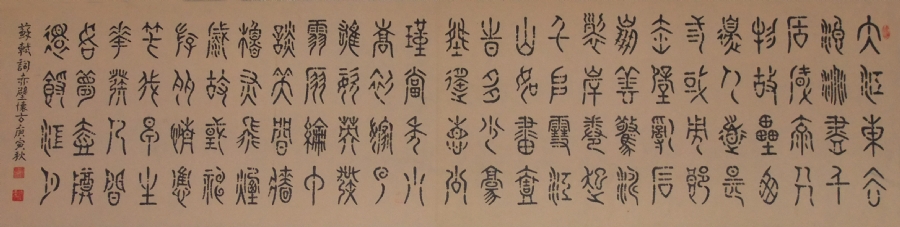 大江東去
浪淘盡千
古風流人
物故壘西
邊人道是
三國周郎
赤壁亂石
崩雲驚濤
裂岸捲起
千堆雪江
山如畫壹
時多少豪
傑遙想公
瑾當年小
喬初嫁了
雄姿英發
羽扇綸巾
談笑間檣
櫓灰飛煙
滅故國神
遊多情應
笑我早生
華髮人間
如夢壹樽
還酹江月
蘇軾詞赤壁懷古庚寅秋